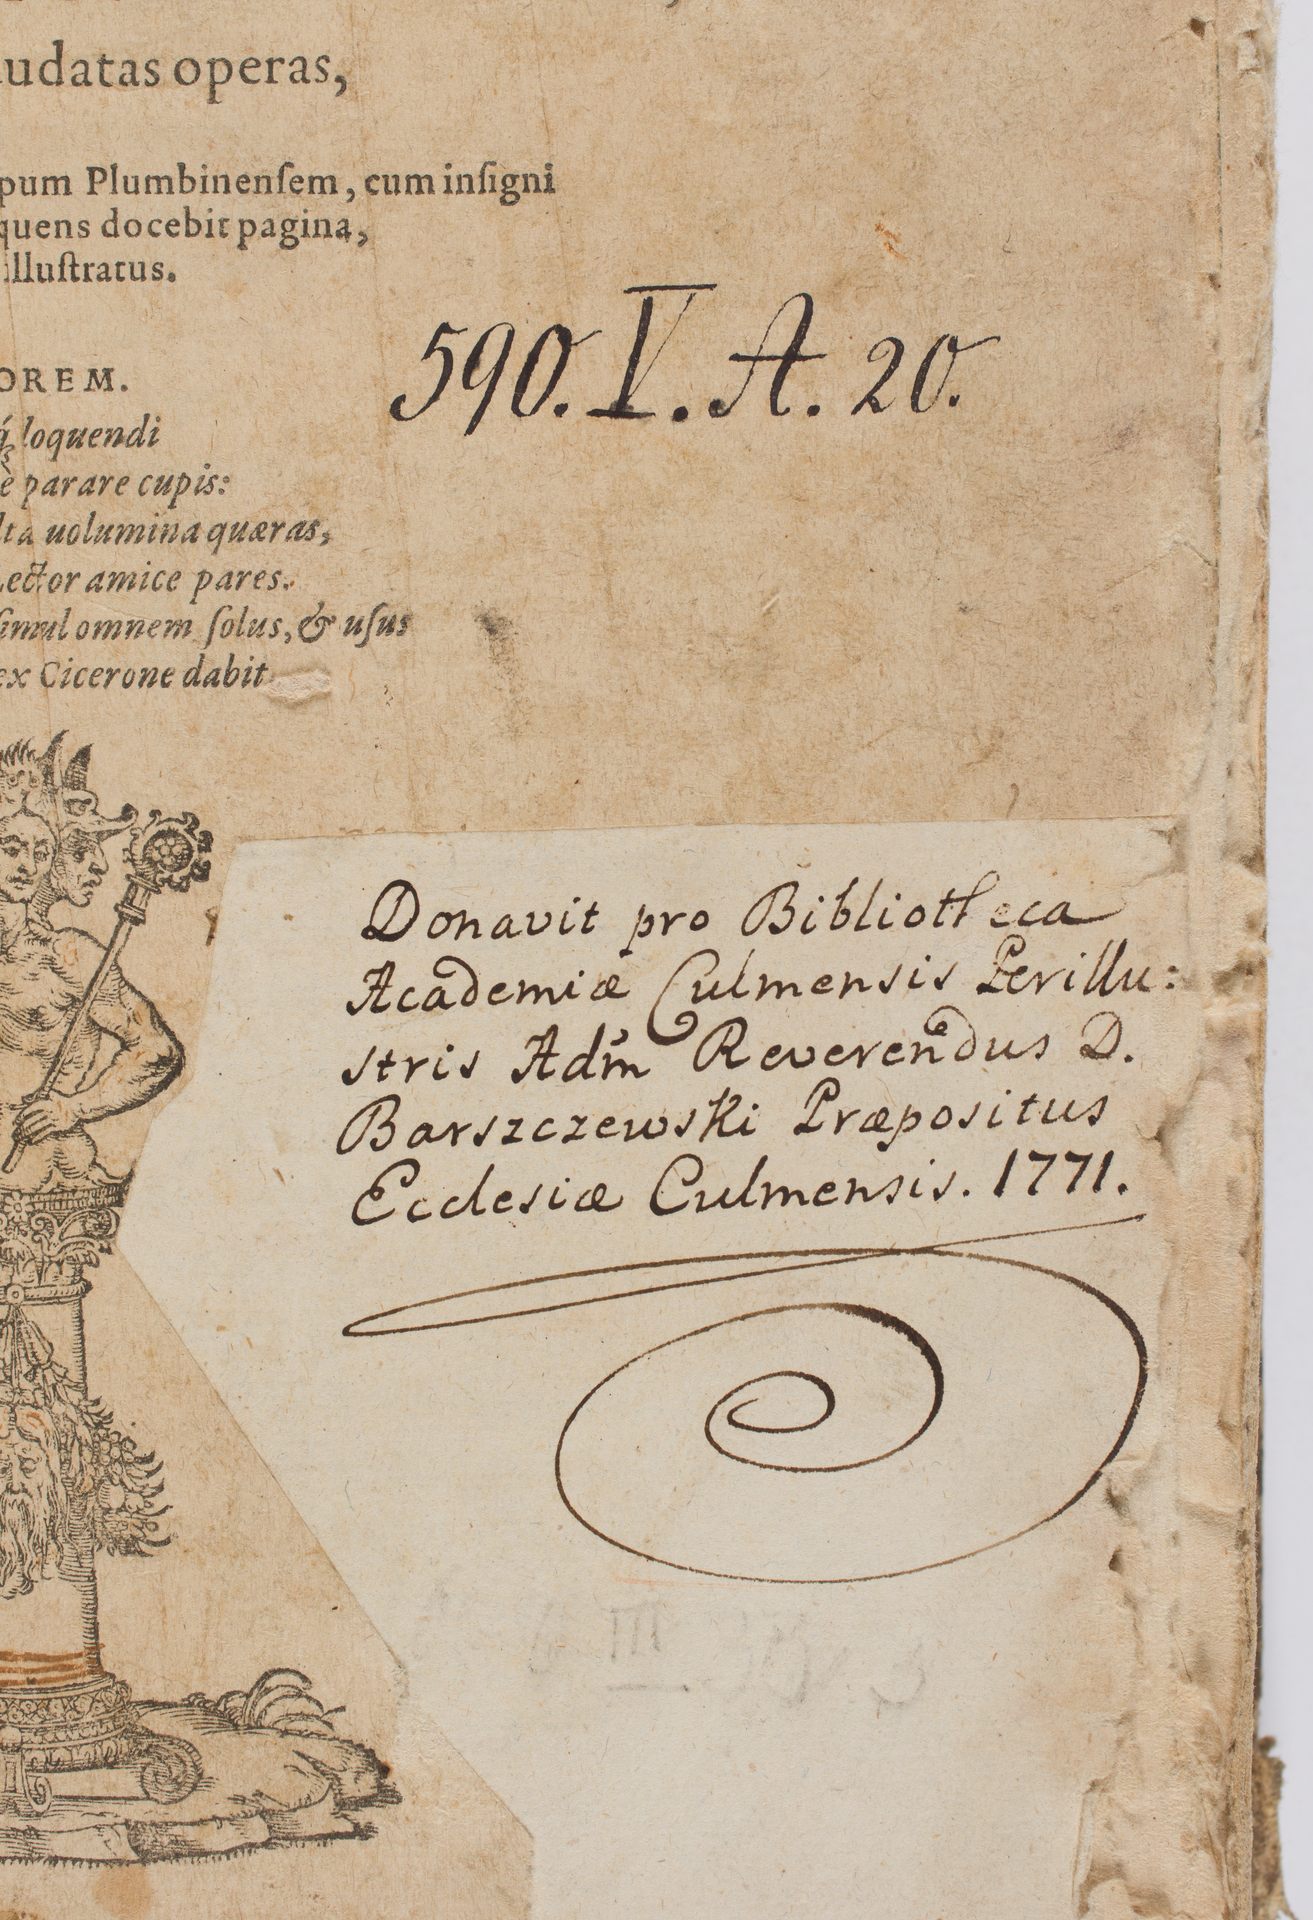 udatas operas,
pum Plumbinenſem, cum inſigni
quens docebit pagina,
illuſtratus.
590. V. A. 20.
OREM.
loquendi
è parare cupis:
lta uolumina quæras,
Lector amice pares.
ſimul omnem ſolus, & uſus
ex Cicerone dabit
Donavit pro Bibliotheca
Academiæ Culmensis Perillu:
stris Adm̃ Reverendus D.
Barszczewski Præpositus
Ecclesiæ Culmensis. 1771.